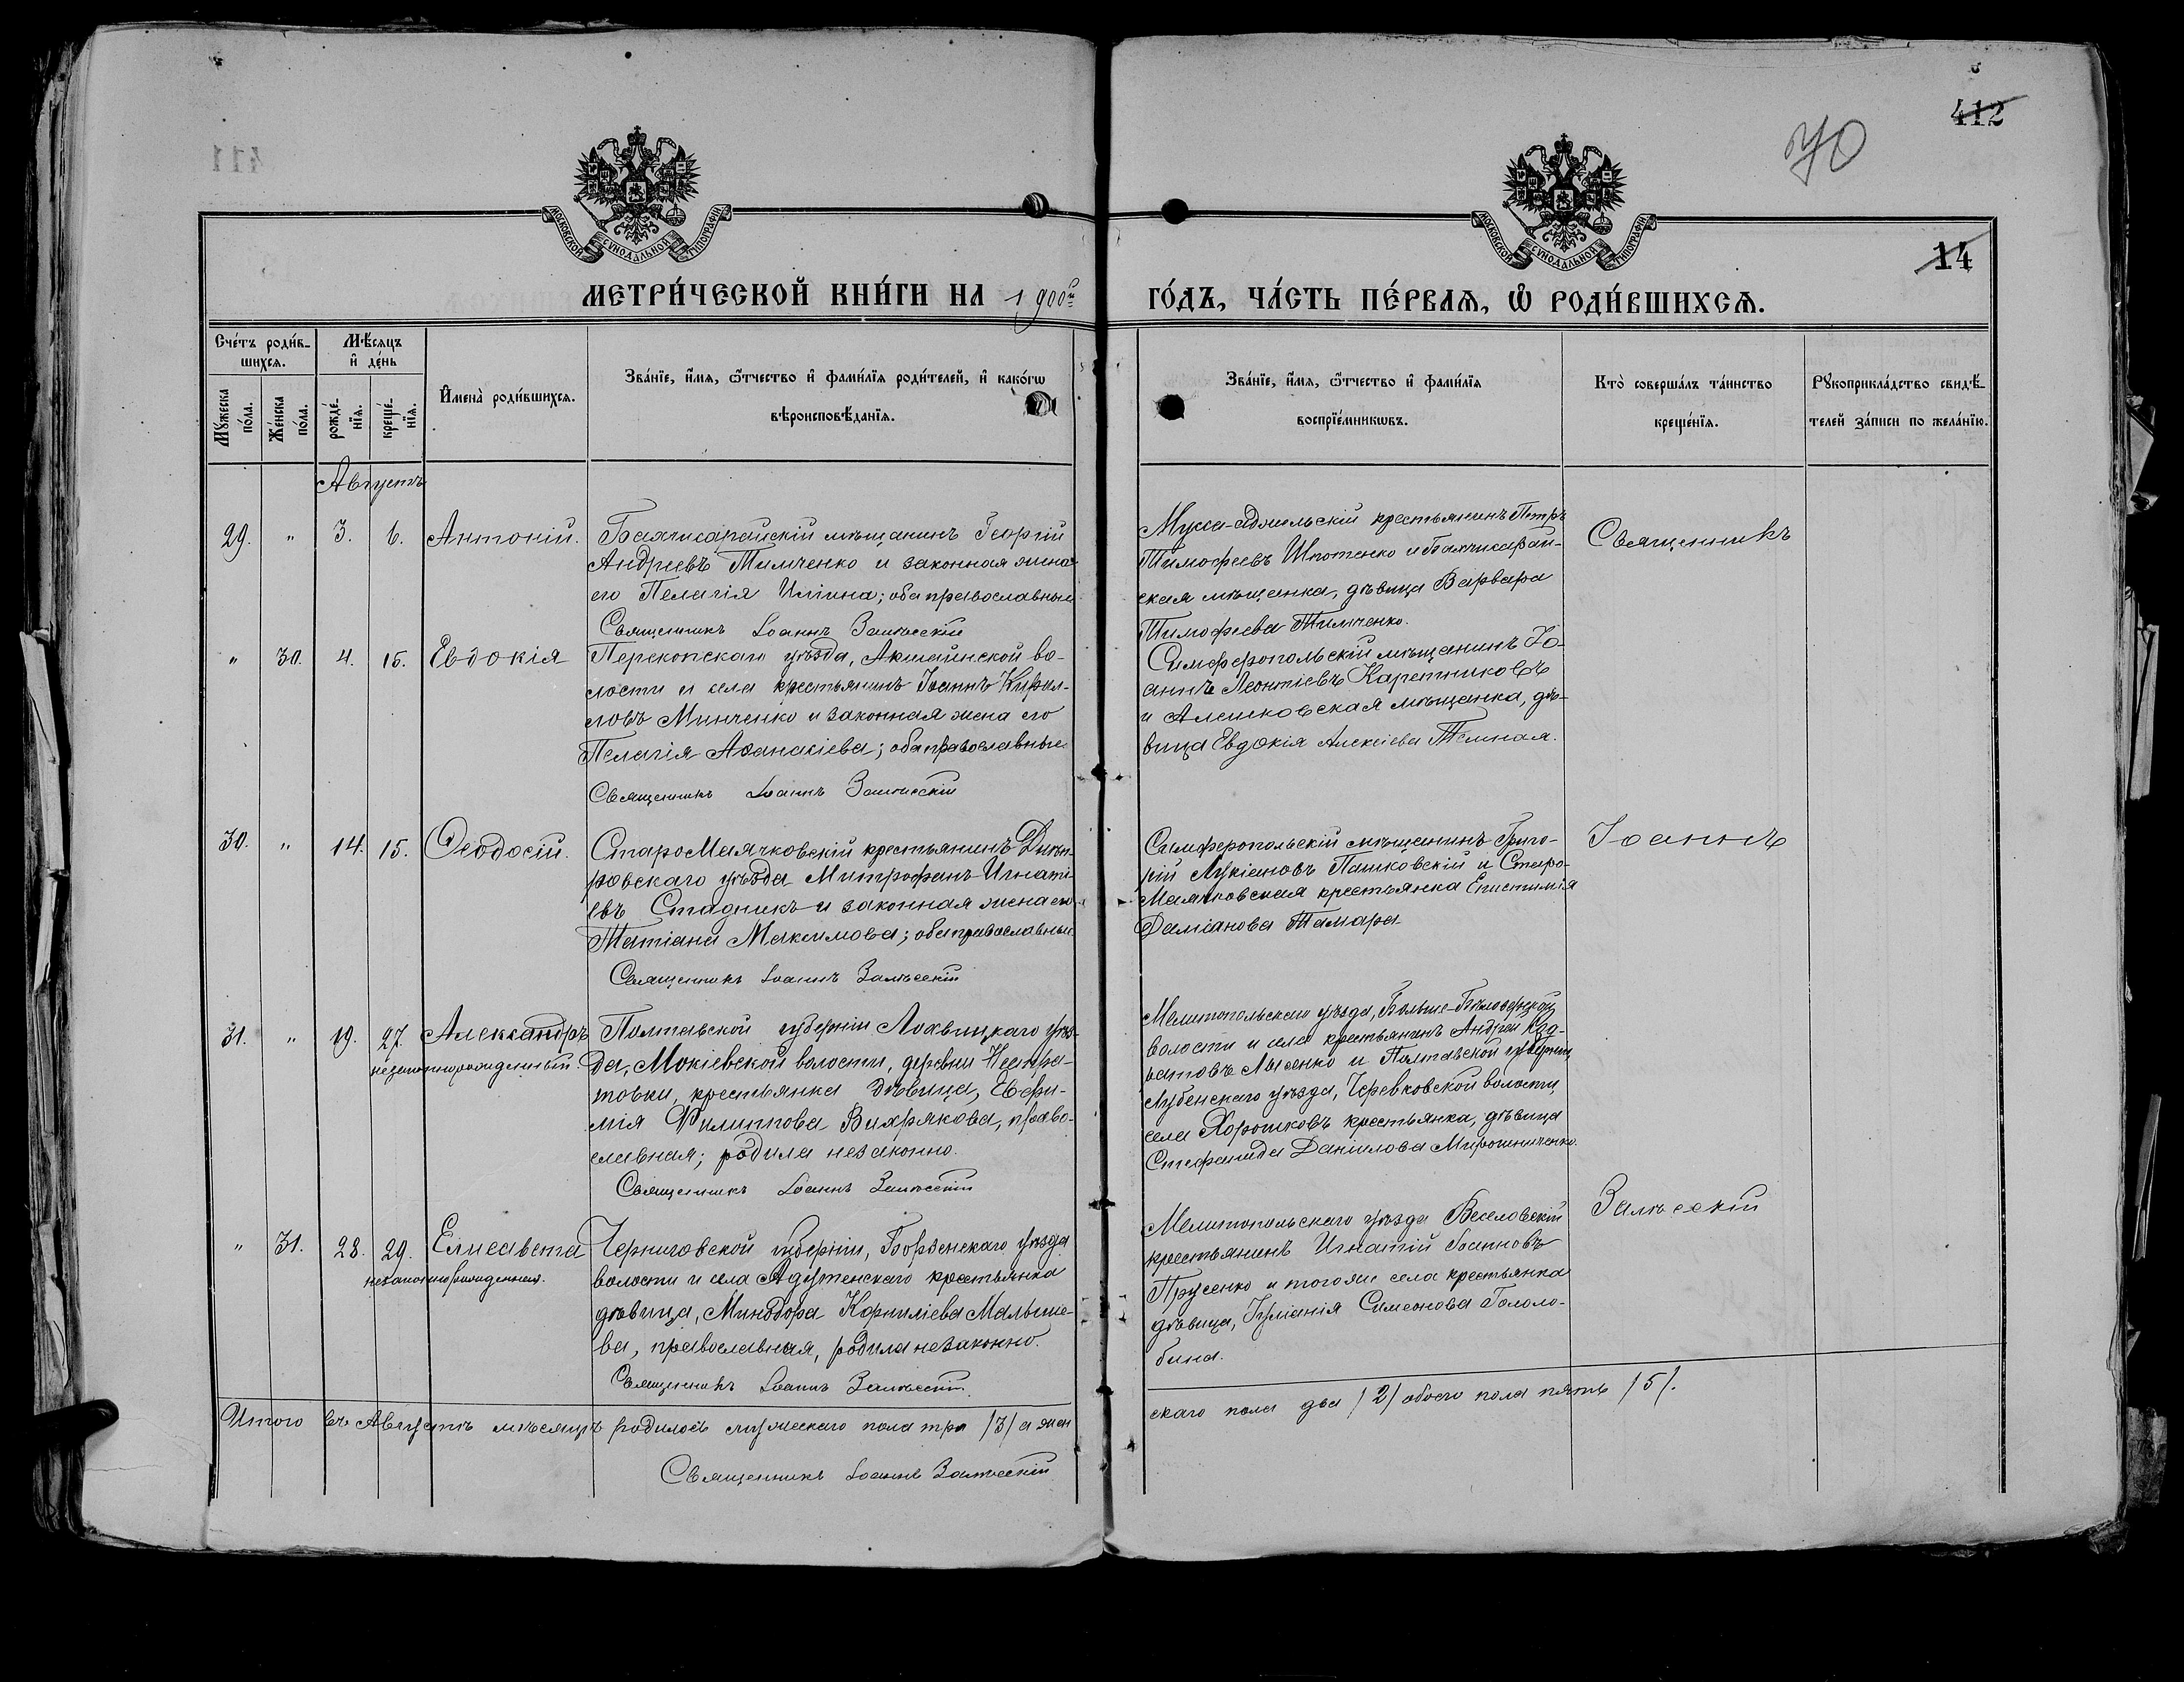 412
70
14
МОСКОВСКОЙ СѴНОДАЛЬНОЙ ТИПОГРАФІИ
МОСКОВСКОЙ СѴНОДАЛЬНОЙ ТИПОГРАФІИ
МЕТРИ́ЧЕСКОЙ КНИ́ГИ НА 1900й
ГО́ДЪ, ЧА́СТЬ ПЕ́РВАѦ, Ѽ РОДИ́ВШИХСѦ.
Сче́тъ роди́в-
шихсѧ.
Мꙋ́жеска по́ла.
Же́нска по́ла.
Мѣ́сѧцъ
и҆ де́нь
рожде́-
нїѧ.
креще́-
нїѧ.
И҆мена̀ роди́вшихсѧ.
Зва́нїе, и҆́мѧ, ѻ҆́тчество и҆ фами́лїѧ роди́телей, и҆ како́гѡ
вѣроисповѣ́данїѧ.
Зва́нїе, и҆́мѧ, ѻ҆́тчество и҆ фами́лїѧ
воспрїе́мникѡвъ.
Кто̀ соверша́лъ та́инство
креще́нїѧ.
Рꙋкоприкла́дство свидѣ́-
телей за́писи по жела́нїю.
Августъ
29. " 3. 6. Антоній.
Бахчисарайскій мѣщанинъ Георгій
Андреевъ Тимченко и законная жена
его Пелагія Ильина; оба православные
Священникъ Іоаннъ Залѣсскій
Петръ
Тимофеевъ Шпотенко и Бахчисарай-
ская мѣщанка, дѣвица Варвара
Тимофеева Тимченко.
Священникъ
" 30. 4. 15. Евдокія
Перекопскаго уѣзда, Акшеинской во-
лости и села крестьянинъ Іоаннъ Кирил-
ловъ Минченко и законная жена его
Пелагія Аѳанасіева; оба православные
Священникъ Іоаннъ Залѣсскій
Симферопольскій мѣщанинъ Іо-
аннъ Леонтіевъ Каретниковъ
и Алешковская мѣщанка, дѣ-
вица Евдокія Алексіева Темная.
30. " 14. 15. Ѳеодосій.
СтароМаячковскій крестьянинъ Днѣп-
ровскаго уѣзда Митрофанъ Игнаті-
евъ Стадникъ и законная жена его
Татіана Максимова; оба православные
Священникъ Іоаннъ Залѣсскій
Симферопольскій мѣщанинъ Григо-
рій Лукіановъ Пашковскій и Старо-
Маячковская крестьянка Епистимія
Даміанова Тамара
Іоаннъ
31. " 19. 27. Александръ
незаконнорожденный
Полтавской губерніи Лохвицкаго уѣз-
да, Мокіевской волости, деревни
крестьянка дѣвица, Евфи-
мія Филиппова Вихрякова, право-
славная; родила незаконно.
Священникъ Іоаннъ Залѣсскій
Мелитопольскаго уѣзда, Больше-Бѣлозерской
волости и села крестьянинъ Андрей Код-
ратовъ Лысенко и Полтавской губерніи
Лубенскаго уѣзда, Черевковской волости,
села Хорошковъ крестьянка, дѣвица
Стефанида Даніилова Мирошниченко.
" 31. 28. 29. Елисавета
незаконнорожденная.
Черниговской губерніи, Борзенскаго уѣзда
волости и села крестьянка
дѣвица, Минодора Корниліева Малыше-
ва, православная, родила незаконно.
Священникъ Іоаннъ Залѣсскій.
Мелитопольскаго уѣзда Веселовскій
крестьянинъ Игнатій Іоанновъ
Прусенко и тогоже села крестьянка
дѣвица, Іуліанія Симеонова Гололо-
бина.
Залѣсскій
Итого въ Августѣ мѣсяцѣ родилось мужескаго пола три /3/ а жен
скаго пола два /2/ обоего пола пять /5/.
Священникъ Іоаннъ Залѣсскій